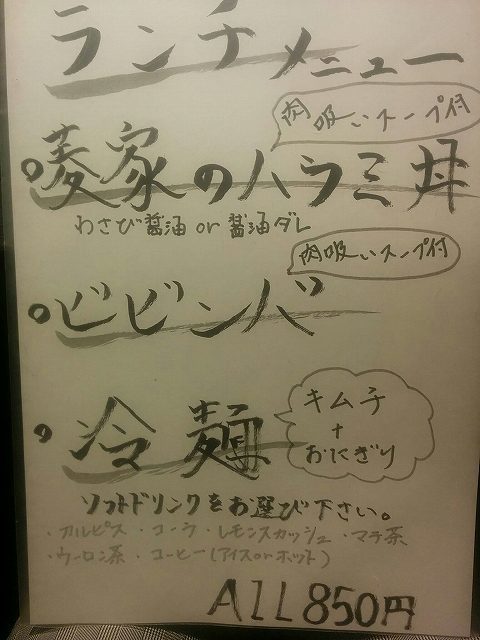 ランチメニュー
肉吸いスープ付
菱家のハラミ丼
わさび醤油 or 醤油ダレ
肉吸いスープ付
ビビンバ
冷麺
キムチ
+
おにぎり
ソフトドリンクをお選び下さい。
・カルピス・コーラ・レモンスカッシュ・マテ茶
・ウーロン茶・コーヒー(アイスorホット)
ALL850円